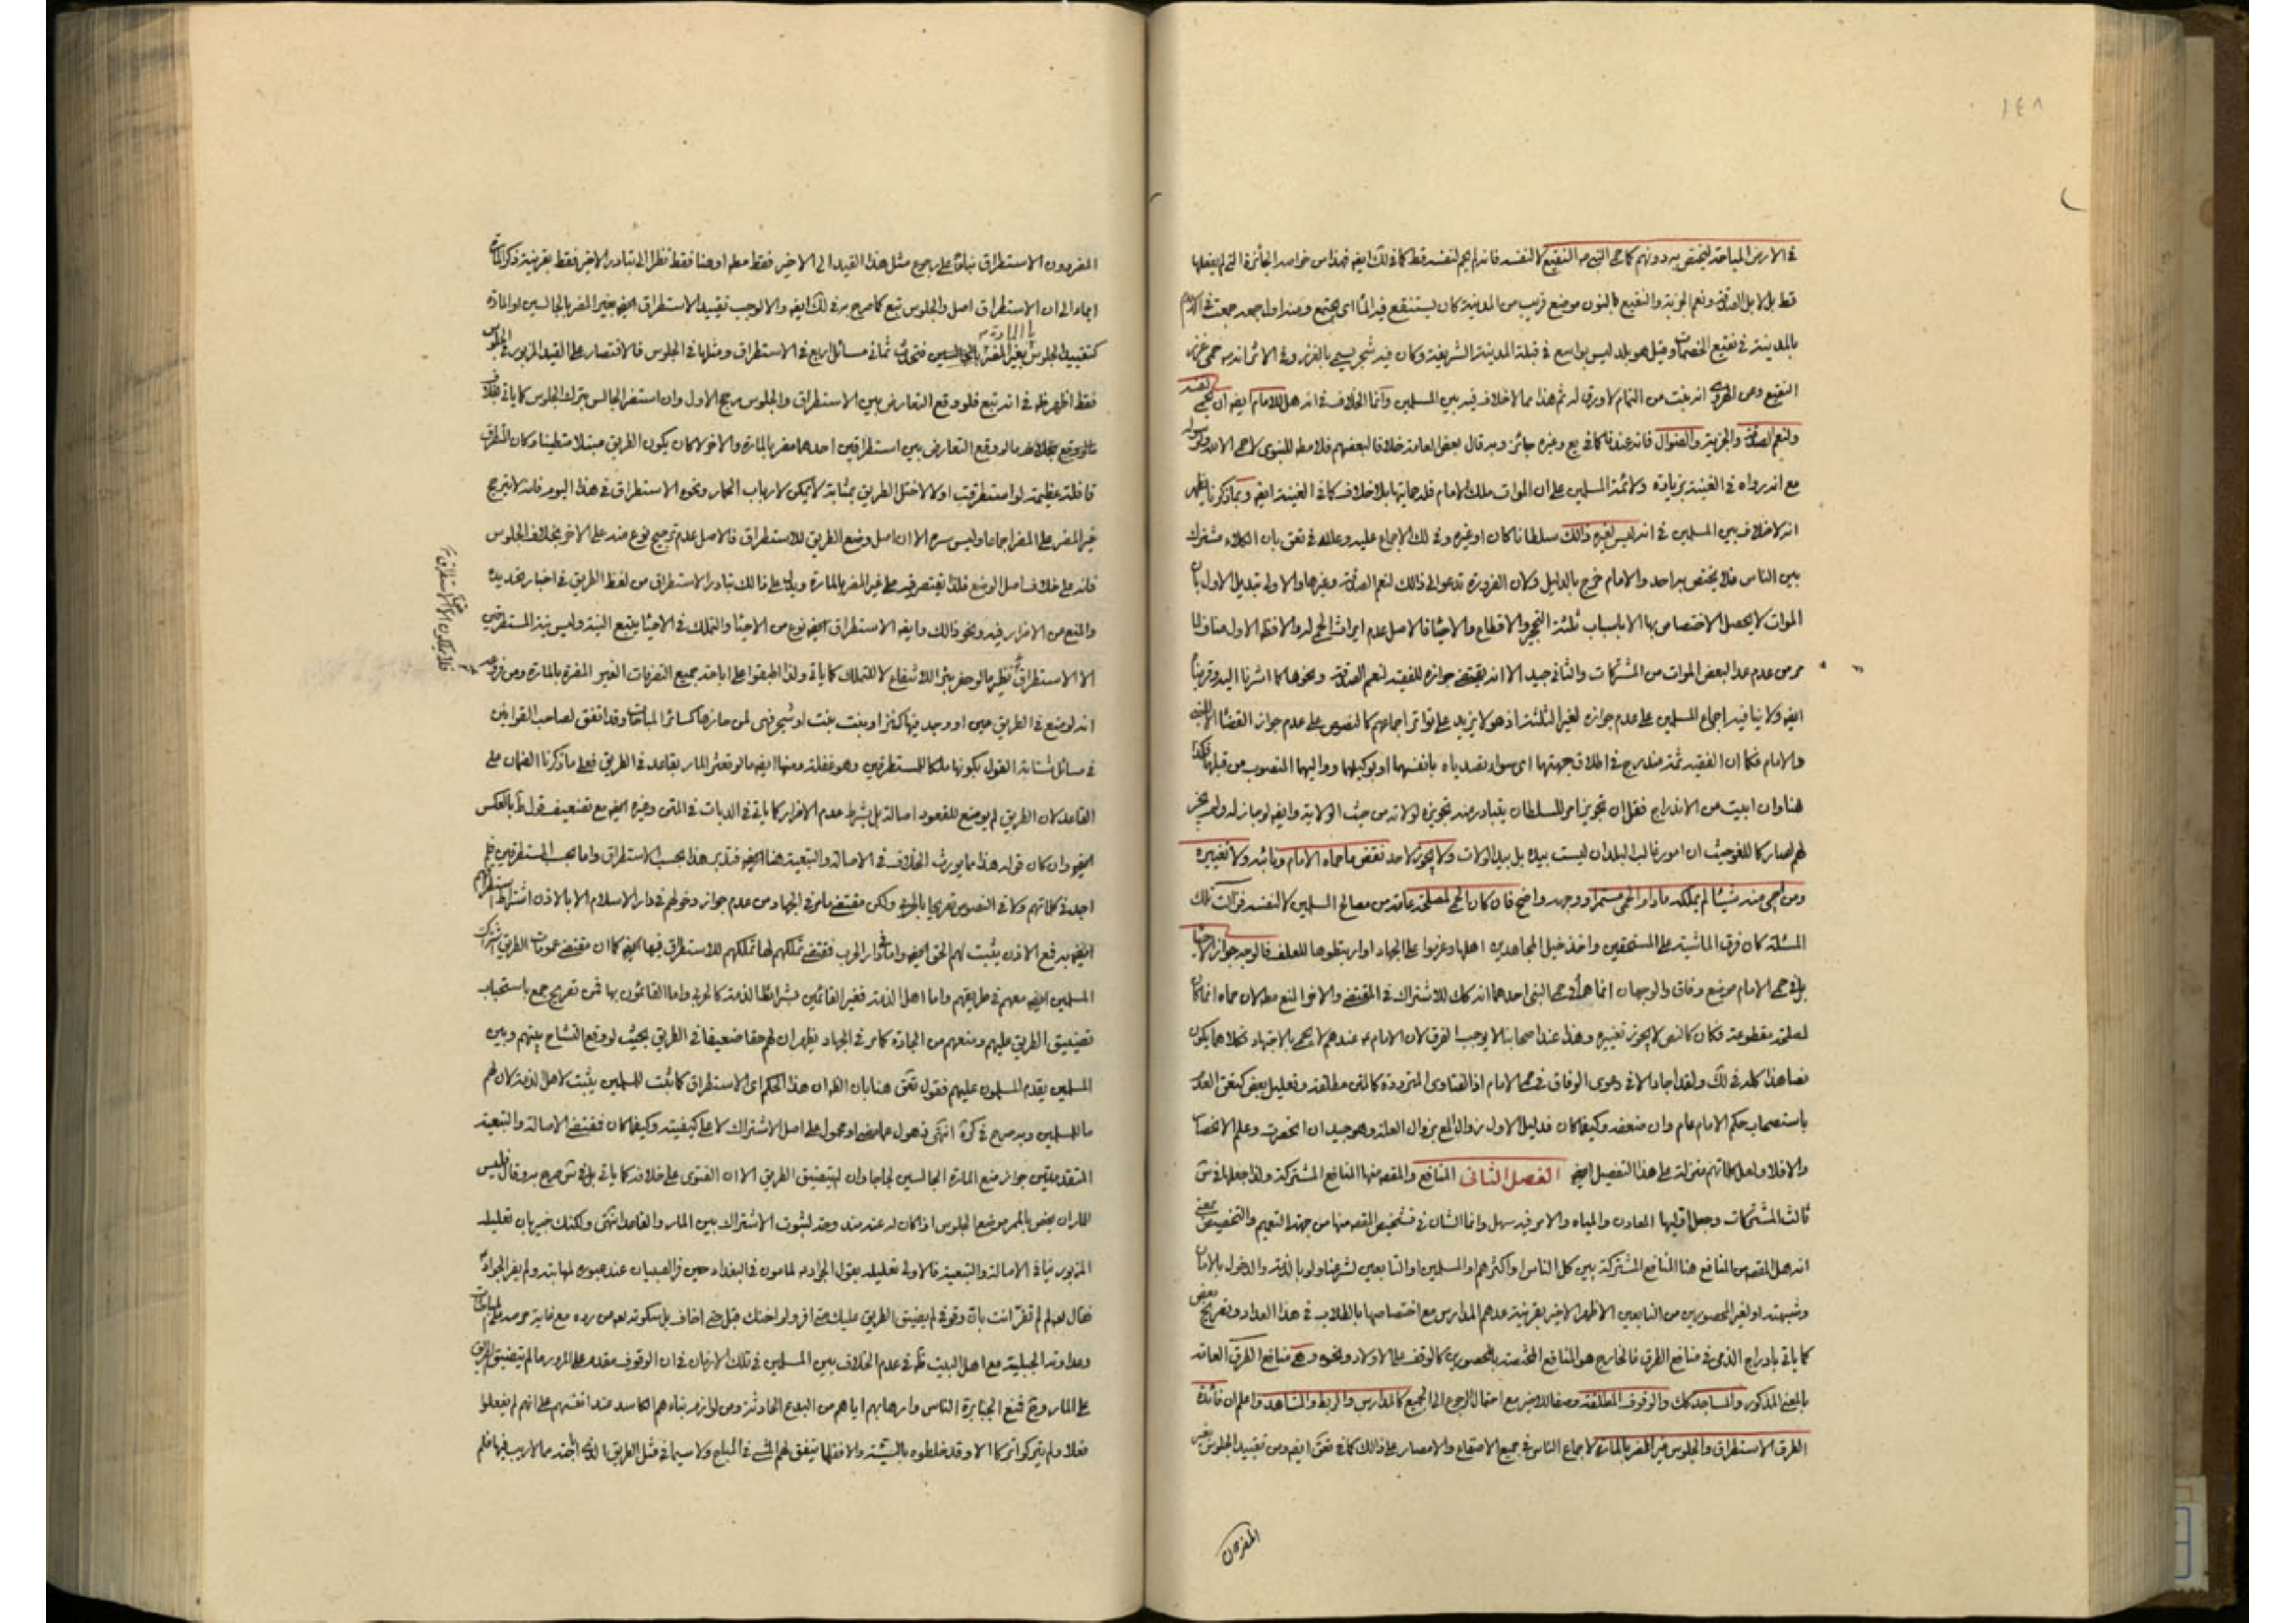 ١٤٨
في الارض المباحة ليختص به دونهم كما حمى النبي ص النقيع لا لنفسه فانه لم يحم لنفسه قط كما في لك ايضا فهذا من خواصه الجائزة التي لم يفعلها
قط بل لابل الصدقة ونعم الجزية والنقيع بالنون موضع قريب من المدينة كان يستنقع فيه الماء اى يجتمع ومنه اول جمعة جمعت في الاسلام
بالمدينة في نقيع الخضمات وقيل هو بلد ليس بواسع في قبلة المدينة الشريفة وكان فيه شجر يسمى بالغرز وفي الاثر انه ص حمى غرز
النقيع وعن انه نبت من الثمام لا ورق له ثم هذا مما لا خلاف فيه بين المسلمين وانما الخلاف في انه هل للامام ايضا ان يحمى لنفسه
ولنعم الصدقة والجزية والضوال فانه عندنا كما في يع وغيره جائز وبه قال بعض العامة خلافا لبعضهم فلا مطه للنبوى لا حمى الا لله ولرسوله
مع انه رواه في الغنية بزيادة ولائمة المسلمين على ان الموات ملك للامام فله حمايتها بلا خلاف كما في الغنية ايضا وبما ذكرنا يظهر
انه لا خلاف بين المسلمين في انه ليس لغيره ذالك سلطانا كان او غيره وفي لك الاجماع عليه وعلله في تعق بان الكلاء مشترك
بين الناس فلا يختص به احد والامام خرج بالدليل ولان الضرورة تدعو الى ذالك لنعم الصدقة وغيرها والاولى تبديل الاول بان
الموات لا يحصل الاختصاص بها الا باسباب ثلثة التحجير والاقطاع والاحياء فالاصل عدم ايراث الحمى له والا فظه الاول مناف لما
مر من عدم عد البعض الموات من المشتركات والثاني جيد الا انه يقتضى جوازه للفقيه لنعم الصدقة ونحوها كما اشرنا اليه وقريبا
ايضا ولا ينافيه اجماع المسلمين على عدم جوازه لغير الثلثة اذ هو لا يزيد على تواتر اجماعهم كالنصوص على عدم جواز القضاء الا للنبي
والامام فكما ان الفقيه ثمة مندرج في اطلاق جهتهما اى سواء تصدياه بانفسهما او بوكيلهما وواليهما المنصوب من قبلهما فكذا
هنا وان ابيت من الاندراج فقل ان تجويز امر للسلطان يتبادر منه تجويزه لولاته من حيث الولاية وايضا لو جاز له ولم يجز
لهم لصار كاللغو حيث ان امور غالب البلدان ليست بيده بل بيد الولات ولا يجوز لاحد نقض ما حماه الامام ونائبه ولا تغييره
ومن احيى منه شيئا لم يملكه مادام الحمى مستمرا ووجهه واضح فان كان الحمى لمصلحة عامة من مصالح المسلمين لا لنفسه فزالت تلك
المسئلة كان فرق الماشية على المستحقين واخذ خيل المجاهدين اهلها وعزموا على الجهاد او ارتبطوها للعلف فالوجه جواز الاحياء
بل في حمى الامام موضع وفاق والوجهان انما هما في حمى النبي احدهما انه كك للاشتراك في المقتضى والاخر المنع مطه لان حماه انما كان
لمصلحة مقطوعة فكان كالنص لا يجوز تغييره وهذا عند اصحابنا لا يوجب الفرق لان الامام ع عندهم لا يحمى بالاجتهاد فكلاهما يكون
نصا هذا كله في لك ولقد اجاد الا في دعوى الوفاق في حمى الامام اذ الفتاوى المترددة كالمتن مطلقة وتعليل بعض كتعق العدم
باستصحاب حكم الامام عام وان ضعفه وكيفما كان فدليل الاول زوال المنع بزوال العلة وهو جيد ان انحصرت وعلم الانحصار
والا فلا ولعل كلماتهم منزلة على هذا التفصيل ايضا الفصل الثانى المنافع والمقصود منها المنافع المشتركة ولذا جعلها في ش
ثالث المشتركات وجعل اوليها المعادن والمياه والامر فيه سهل وانما الشان في تشخيص المقصود منها من جهة التعميم والتخصيص بمعنى
انه هل المقصود من المنافع هنا المنافع المشتركة بين كل الناس او اكثرهم او المسلمين او التابعين لشرعنا ولو بالذمة والدخول بالامان
وشبهته او لغير المحصورين من التابعين الاظهر الاخير بقرينة عدهم المدارس مع اختصاصها بالطلاب في هذا العداد وتصريح بعض
كما ياتى بادراج الذمى في منافع الطرق فالخارج هو المنافع المختصة بالمحصورين كالوقف على الاولاد ونحوه وهى منافع الطرق العامة
بالمعنى المذكور والمساجد كك والوقوف المطلقة وصفا للاخير مع احتمال الرجوع الى الجميع كالمدارس والربط والمشاهد واعلم ان فائدة
الطرق الاستطراق والجلوس غير المضر بالمارة لاجماع الناس في جميع الاصقاع والامصار على ذالك كما في تعق ايضا ومن تقييد الجلوس بغير
المضر دون
المضر دون الاستطراق بناء على رجوع مثل هذا القيد الى الاخير فقط مطه او هنا فقط نظرا الى تبادر الاخير فقط بقرينة ذكر المارة
ايماء الى ان الاستطراق اصل والجلوس تبع كما صرح به في لك ايضا والا لوجب تقييد الاستطراق ايضا بغير المضر بالجالسين او المارة
كتقييد الجلوس بغير المضر بالجالسين فتحدث ثماني مسائل اربع في الاستطراق ومثلها في الجلوس فالاقتصار على القيد المزبور في الجلوس
فقط اظهر ظه في انه تبع فلو وقع التعارض بين الاستطراق والجلوس رجح الاول وان استضر الجالس بترك الجلوس كما ياتى بخلاف
ما لو وقع التعارض بين استطراقين احدهما مضر بالمارة والاخر لا كان يكون الطريق مبتلا متطينا وكان المتطرق
قافلة عظيمة لو استطرقت اولا لاختل الطريق بمثابة لا يمكن لارباب الحمار ونحوه الاستطراق في هذا اليوم فانه لا يترجح
غير المضر على المضر اجماعا وليس سره الا ان اصل وضع الطريق للاستطراق فالاصل عدم ترجيح نوع منه على الاخر بخلاف الجلوس
فانه على خلاف اصل الوضع فلذا يقتصر فيه على غير المضر بالمارة ويدل على ذالك تبادر الاستطراق من لفظ الطريق في اخبار تحديده
والمنع من الاضرار فيه ونحو ذالك وايضا الاستطراق ايضا نوع من الاحياء والتملك في الاحياء يتبع النية وليس نية المستطرقين
فلا يملكون الا الاستطراق
الا الاستطراق نظير ما لو حفر بئرا للانتفاع لا للتملك كما ياتى ولذا اطبقوا على اباحة جميع التصرفات الغير المضرة بالمارة ومن فروعه
انه لو نبع في الطريق عين او وجد فيها كنز او نبت نبت او شجر فهى لمن حازها كسائر المباحات وقد اتفق لصاحب القوانين
في مسائل شتاته القول بكونها ملكا للمستطرقين وهو غفلة ومنها ايضا ما لو تعثر المار بقاعد في الطريق فعلى ما ذكرنا الضمان على
القاعد لان الطريق لم يوضع للقعود اصالة بل بشرط عدم الاضرار كما ياتى في الديات في المتن وغيره ايضا مع تضعيف قول ط بالعكس
ايضا وان كان قوله هذا مما يورث الخلاف في الاصالة والتبعية هنا ايضا فتدبر هذا بحسب الاستطراق واما بحسب المستطرقين فلم
اجد في كلماتهم ولا في النصوص تصريحا بالحربى ولكن مقتضى ما مر في الجهاد من عدم جواز دخولهم في دار الاسلام الا بالاذن اشتراط استطراقهم
ايضا به فمع الاذن يثبت لهم الحق ايضا واما في دار الحرب فمقتضى تملكهم لها تملكهم للاستطراق فيها ايضا كما ان مقتضى عمومات الطريق اشتراك
المسلمين ايضا معهم في طريقهم واما اهل الذمة فغير القائمين بشرائط الذمة كالحربى واما القائمون بها فمن تصريح جمع باستحباب
تضييق الطريق عليهم ومنعهم من الجادة كما مر في الجهاد يظهر ان لهم حقا ضعيفا في الطريق بحيث لو وقع التشاح بينهم وبين
المسلمين يقدم المسلمون عليهم فقول تعق هنا بان الظه ان هذا الحكم اى الاستطراق كما يثبت للمسلمين يثبت لاهل الذمة لان لهم
ما للمسلمين وبه صرح في كرة انتهى ذهول عما مضى او محمول على اصل الاشتراك لا على كيفيته وكيفما كان فمقتضى الاصالة والتبعية
المتقدمتين جواز منع المارة الجالسين لجاجا وان لم يتضيق الطريق الا ان الفتوى على خلافه كما ياتى بل في ش صرح به وقال فليس
للمار ان يخص بالممر موضع الجلوس اذا كان له عنه مندوحة لثبوت الاشتراك بين المار والقاعد انتهى ولكنك خبير بان تعليله
المزبور ينافي الاصالة والتبعية فالاولى تعليله بقول الجواد ع لمامون في البغداد حين فر الصبيان عند عبوره لمهابته ولم يفر الجواد ع
فقال له لم لم تفر انت بان وقوفى لم يضيق الطريق عليك حتى افر ولو اخذتك قبل حتى اخاف بل سكوته لعنه من رده مع غاية حرصه
وعداوته الجبلية مع اهل البيت ظه في عدم الخلاف بين المسلمين في تلك الازمان في ان الوقوف مقدم على المرور ما لم يتضيق الطريق
على المار وح فمنع الجبابرة الناس وارهابهم اياهم من البدع الحادثة ومن لوازم بناءهم الفاسد عند انفسهم على انهم لم يفعلوا
فعلا ولم يتركوا تركا الا وقد خلطوه بالسيئة والا فقلما يتفق لهم المشى في المباح ولا سيما في مثل الطريق مما لا ريب فيها فلم